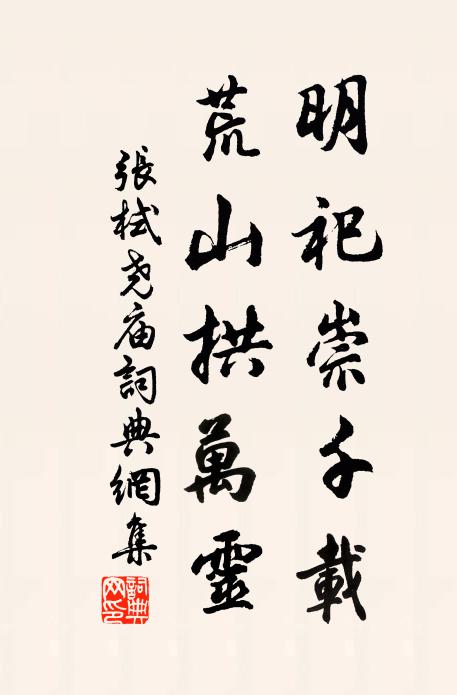 明祀崇千載
荒山拱萬靈
張栻尧庙詞典網集
詞典网印